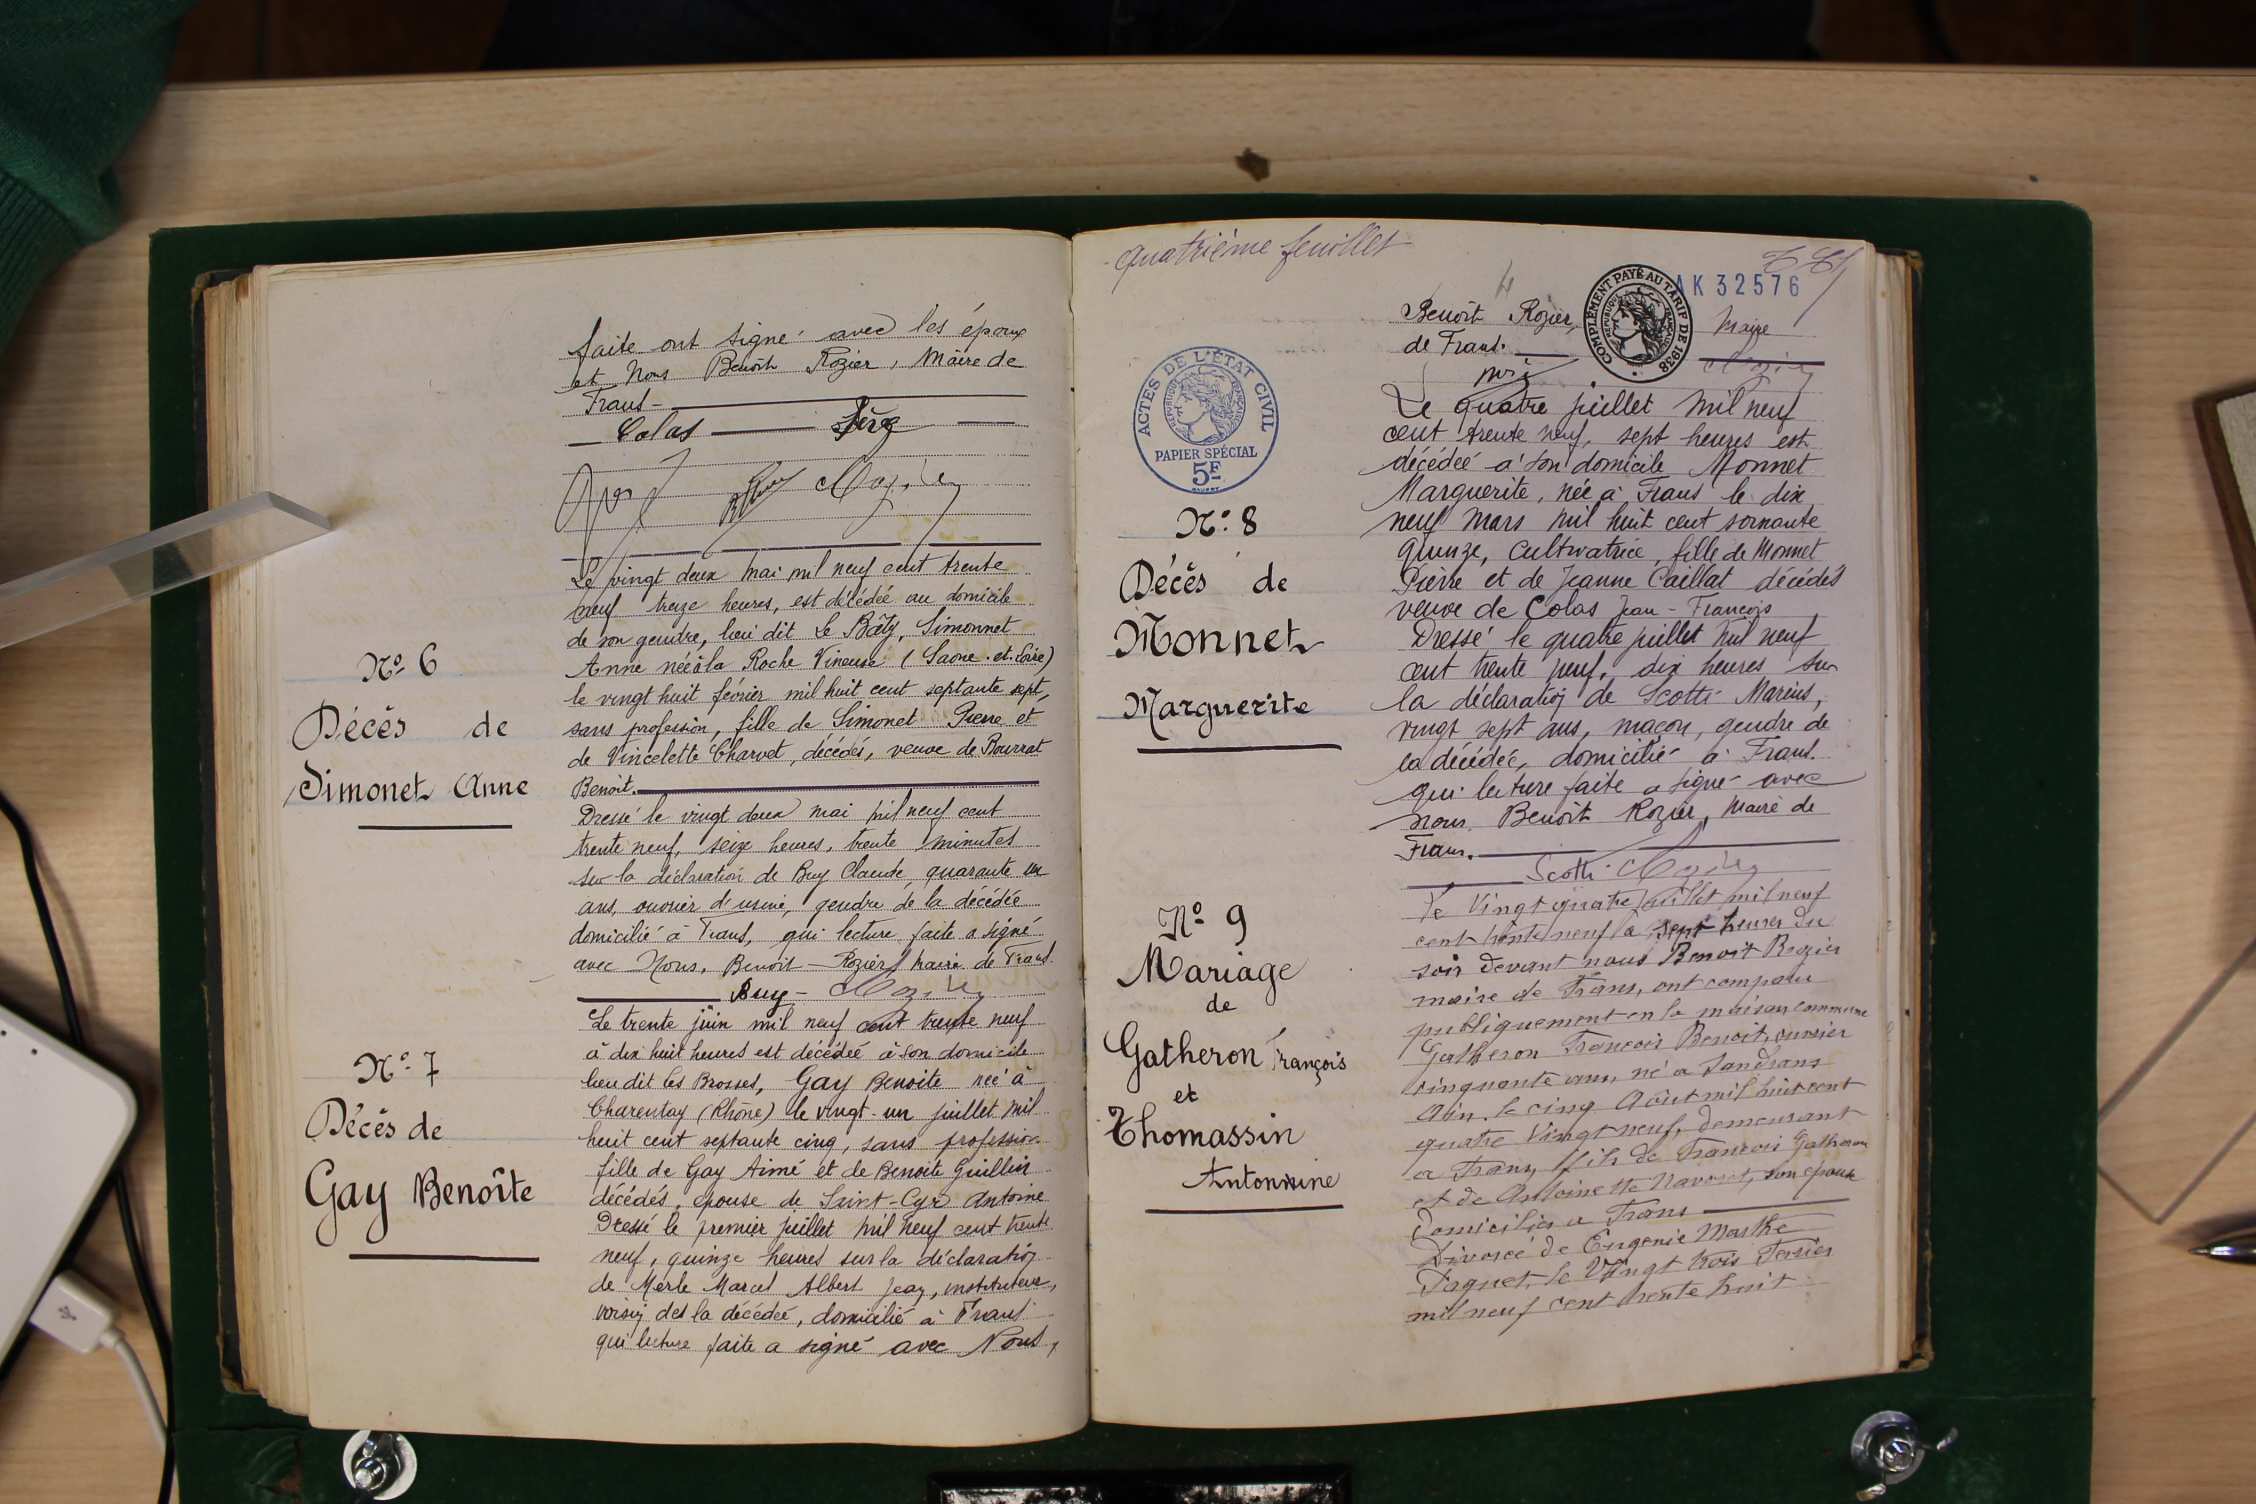 faite ont signé avec les époux
et Nous Benoît Rozier, Maire de
Frans
Colas Père
Nº 6
Décès de
Simonet Anne
Le vingt deux mai mil neuf cent trente
neuf treize heures, est décédée au domicile
de son gendre, lieu dit Le Bâty, Simonnet
Anne née à la Roche Vineuse (Saone-et-Loire)
le vingt huit février mil huit cent septante sept,
sans profession, fille de Simonet Pierre et
de Vincelette Charvet, décédés, veuve de Bourrat
Benoit.
Dressé le vingt deux mai mil neuf cent
trente neuf, seize heures, trente minutes
sur la déclaration de Buy Claude, quarante un
ans, ouvrier d'usine, gendre de la décédée
domicilié à Frans, qui lecture faite a signé
avec Nous, Benoit Rozier, maire de Frans.
Buy
Nº 7
Décès de
Gay Benoîte
Le trente juin mil neuf cent trente neuf
à dix huit heures est décédée à son domicile
lieu dit les Brosses, Gay Benoite née à
Charentay (Rhône) le vingt-un juillet mil
huit cent septante cinq, sans profession
fille de Gay Aimé et de Benoite Guillin
décédés, épouse de Saint-Cyr Antoine
Dressé le premier juillet mil neuf cent trente
neuf, quinze heures sur la déclaration
de Merle Marcel Albert Jean, instituteur,
voisin de la décédée, domicilié à Frans
qui lecture faite a signé avec Nous,
quatrième feuillet
4
AK 32576
COMPLÉMENT PAYÉ AU TARIF DE 1938
RÉPUBLIQUE FRANÇAISE
Benoît Rozier, Maire
de Frans.
ACTES DE L'ÉTAT CIVIL
RÉPUBLIQUE FRANÇAISE
PAPIER SPÉCIAL
5F
Nº 8
Décès de
Monnet
Marguerite
Le quatre juillet mil neuf
cent trente neuf, sept heures est
décédée à son domicile Monnet
Marguerite, née à Frans le dix
neuf mars mil huit cent soixante
quinze, cultivatrice, fille de Monnet
Pierre et de Jeanne Caillat décédés
veuve de Colas Jean-François
Dressé le quatre juillet mil neuf
cent trente neuf, dix heures sur
la déclaration de Scotti Marius,
vingt sept ans, maçon, gendre de
la décédée, domicilié à Frans.
qui lecture faite a signé avec
nous Benoit Rozier, Maire de
Frans.
Scotti
Nº 9
Mariage
de
Gatheron François
et
Thomassin
Antonnine
Le Vingt quatre juillet mil neuf
cent trente neuf à sept heures du
soir devant nous Benoit Rozier
maire de Frans, ont comparu
publiquement en la maison commune
Gatheron François Benoit, ouvrier
cinquante ans, né à Sandrans
Ain, le cinq Août mil huit cent
quatre Vingt neuf, demeurant
a Frans, fils de Francois Gatheron
et de Antoinette Navoret, son épouse
domiciliés a Frans
Divorcé de Eugenie Marthe
Paquet, le Vingt trois Fevrier
mil neuf cent trente huit